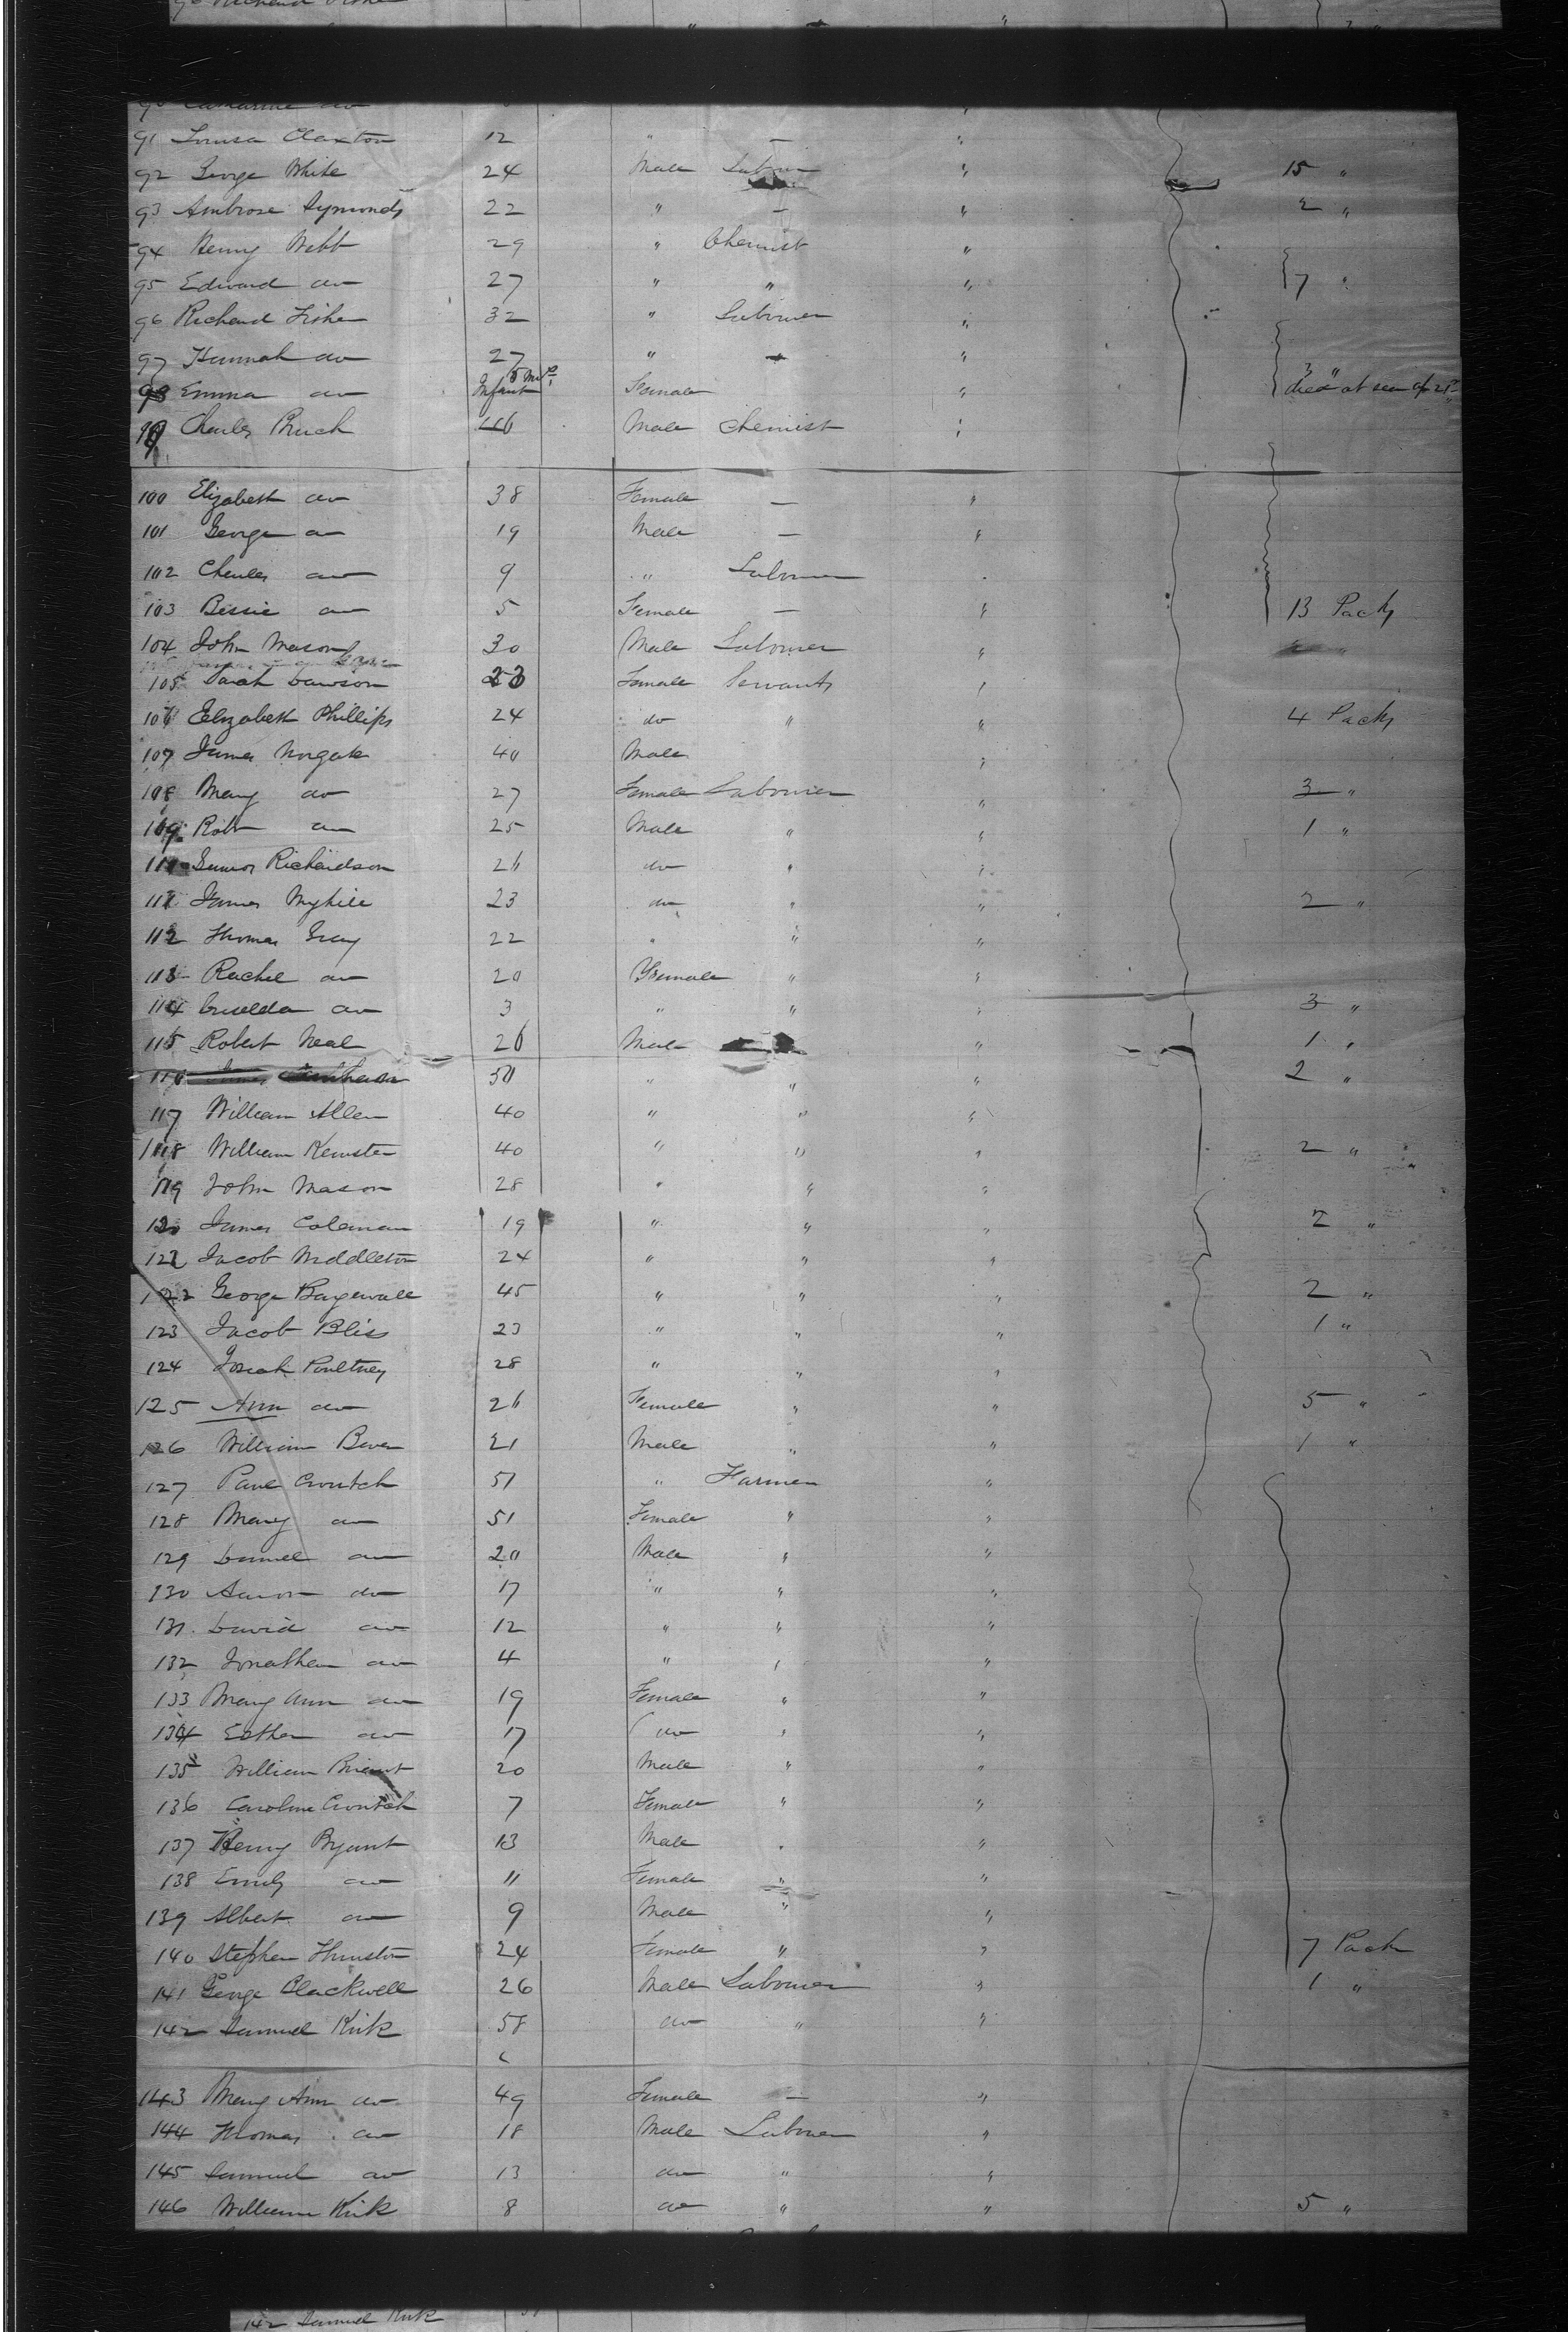 96 Richard Fisher
90 Catharine do
91 Louisa Claxton 12 " — "
92 George White 24 Male Labourer " 15 "
93 Ambrose Symonds 22 " — " 2 "
94 Henry Webb 29 " Chemist "
95 Edward do 27 " " " 7 "
96 Richard Fisher 32 " Labourer "
97 Hannah do 27 " — " 3 "
98 Emma do Infant Female " died at sea
99 Charles Bruch Male Chemist "
100 Elizabeth do 38 Female — "
101 George do 19 Male — "
102 Charles do 9 " Labourer
103 Bessie do 5 Female — " 13 Packs
104 John Mason 30 Male Labourer "
105 Sarah Dawson 23 Female Servants "
106 Elizabeth Phillips 24 do " " 4 Packs
107 James Norgate 40 Male "
108 Mary do 27 Female Labourer " 3 "
109 Robt do 25 Male " " 1 "
110 Richardson 26 do " "
111 James Myhill 23 do " " 2 "
112 Thomas Gray 22 " " "
113 Rachel do 20 Female " "
114 Griselda do 3 " " " 3 "
115 Robert Neal 26 Male " 1 "
116 50 " " " 2 "
117 William Allen 40 " " "
118 William Kemster 40 " " " 2 "
119 John Mason 28 " " "
120 James Coleman 19 " " " 2 "
121 Jacob Middleton 24 " " "
122 George 45 " " " 2 "
123 Jacob Bliss 23 " " " 1 "
124 Josiah Poultney 28 " " "
125 Ann do 26 Female " " 5 "
126 William Bever 21 Male " " 1 "
127 Paul Croutch 51 " Farmer "
128 Mary do 51 Female " "
129 Daniel do 20 Male " "
130 Aaron do 17 " " "
131 David do 12 " " "
132 Jonathan do 4 " " "
133 Mary Ann do 19 Female " "
134 Esther do 17 do " "
135 William Briant 20 Male " "
136 Caroline Croutch 7 Female " "
137 Henry Bryant 13 Male " "
138 Emily do 11 Female " "
139 Albert do 9 Male " "
140 Stephen Thurston 24 Female " " 7 Packs
141 George Clackwell 26 Male Labourer " 1 "
142 Samuel Kirk 58 do " "
143 Mary Ann do 49 Female — "
144 Thomas do 18 Male Labourer "
145 Samuel do 13 do " "
146 William Kirk 8 do " " 5 "
142 Samuel Kirk